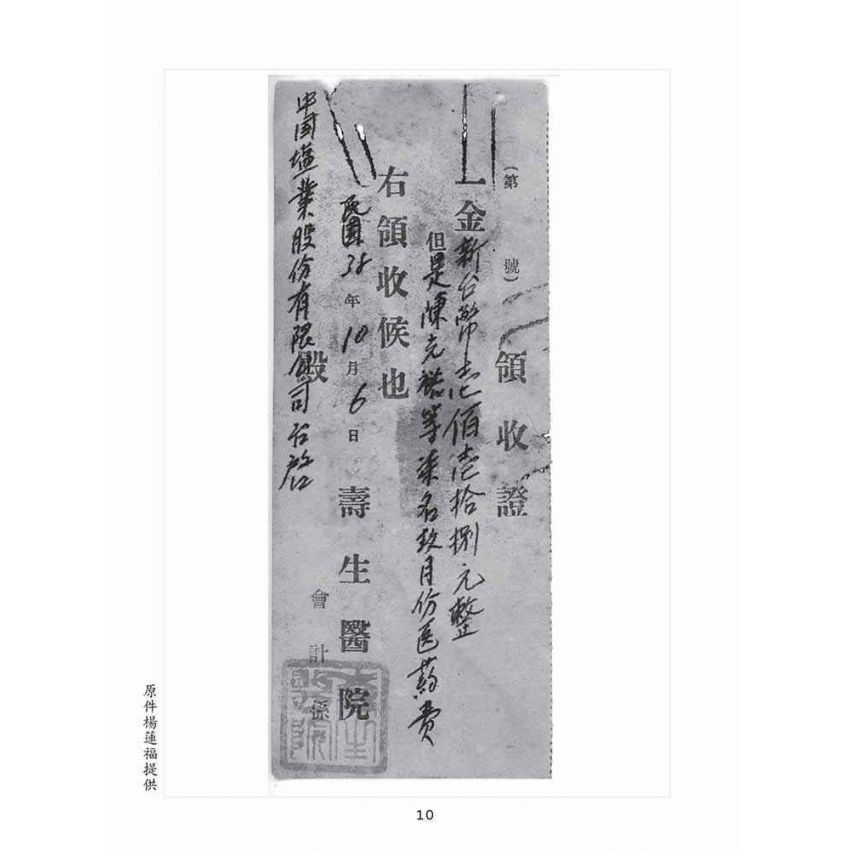 (第 號)
領收證
一金新台幣壱佰壱拾捌元整
但是陳克裕等柒名玖月份医药費
右領收候也
民國38年10月6日
壽生醫院
會計係
殿
中国塩業股份有限公司台啓
原件楊蓮福提供
10